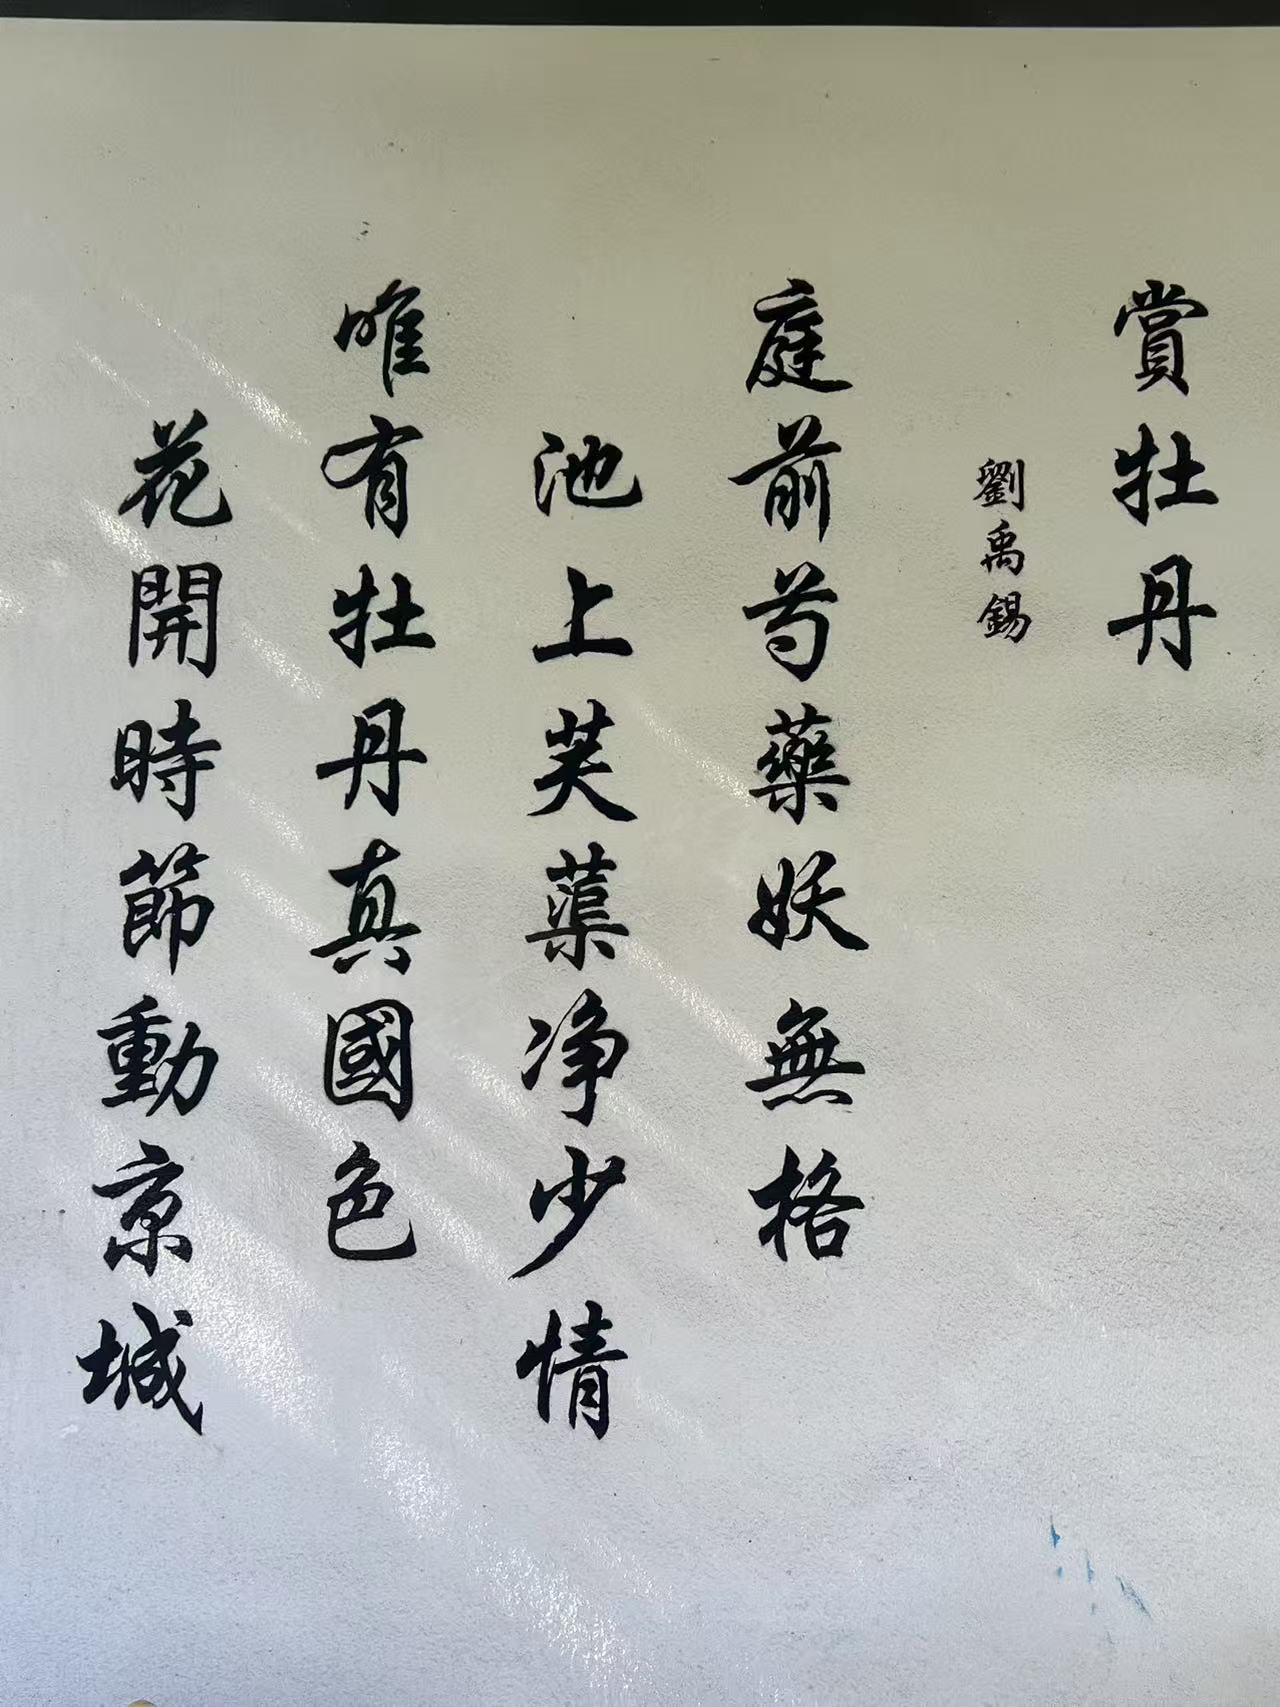 賞牡丹
劉禹錫
庭前芍藥妖無格
池上芙蕖净少情
唯有牡丹真國色
花開時節動京城